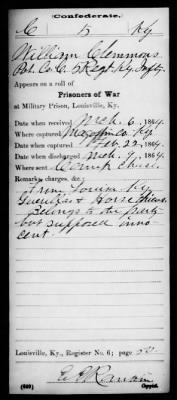 Confederate.
C 5 Ky
William Clemmons
Pvt. Co. C. 5 Regt. Ky. Infty.
Appears on a roll of
Prisoners of War
at Military Prison, Louisville, Ky.
Date when received Mch. 6, 1864.
Where captured Co. Ky
When captured Feb. 22, 1864.
Date when discharged Mch. 9, 1864.
Where sent Camp Chase.
Remarks, charges, &c.:
from Louisa Ky.
Guerillas & Horse thieves.
Belongs to the party
but supposed inno-
cent.
Louisville, Ky., Register No. 6; page
(639) Copyist.